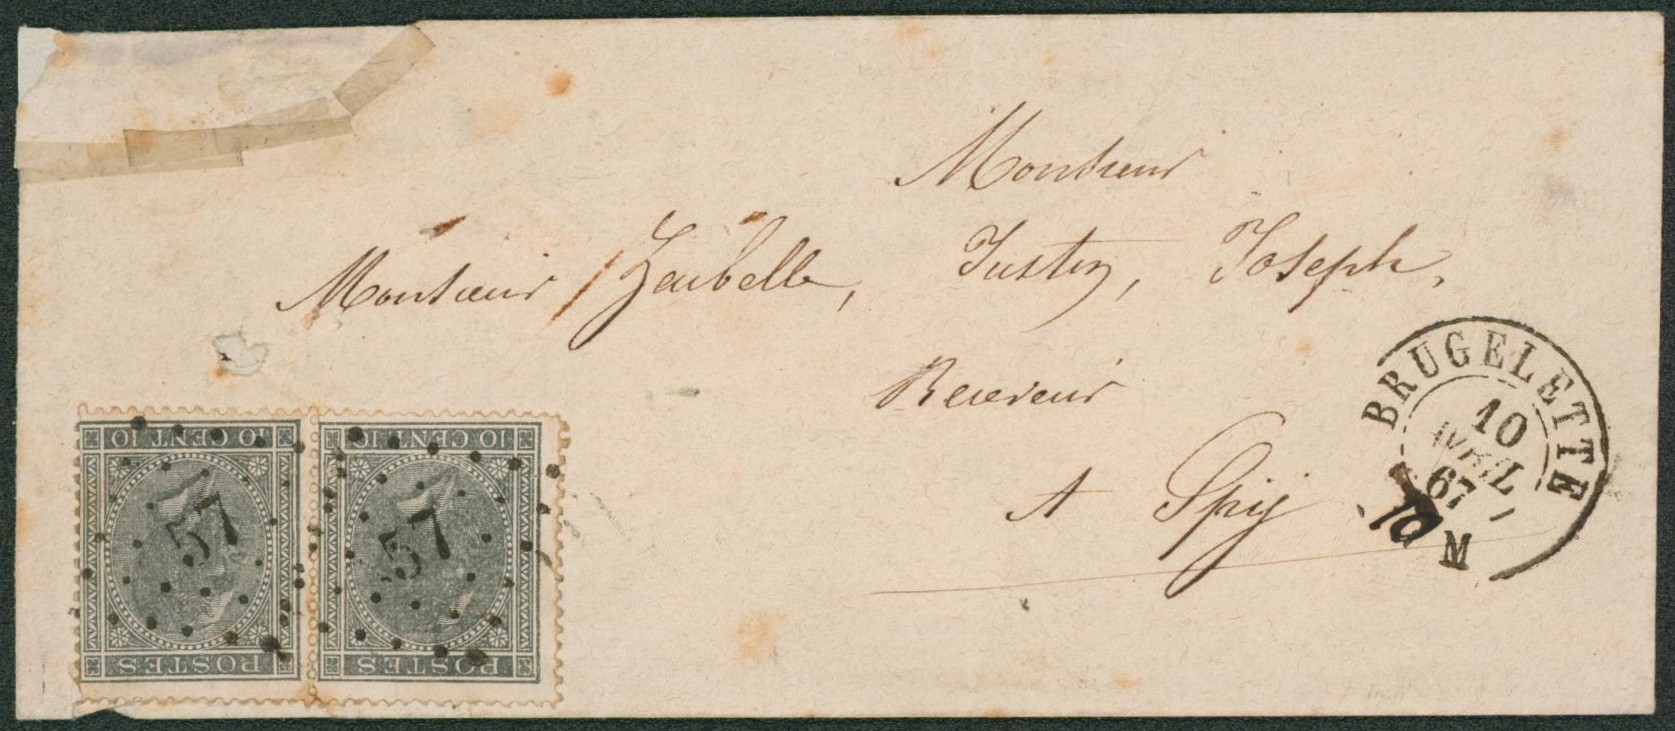 Monsieur
Monsieur Zaibelle, Justin, Joseph,
Receveur
A Spy
BRUGELETTE
10
AVRIL
67
M
10 CENT. 10
POSTES
57
10 CENT. 10
POSTES
57